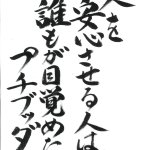 人を
安心させる人は
誰もが目覚めた
プチブッダ